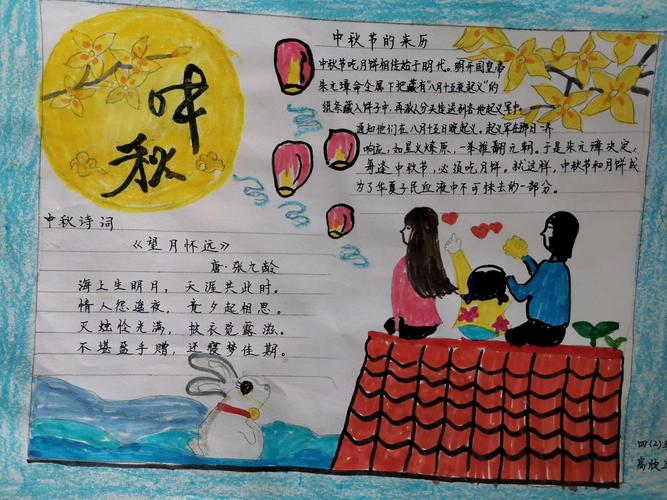 中秋
中秋节的来历
中秋节吃月饼相传始于明代。明开国皇帝
朱元璋命全属下把藏有“八月十五夜起义”的
纸条藏入饼子中，再派人分头送送到各地起义军中。
通知他们在八月十五日晚起义，起义军在那日一齐
响应，如星火燎原，一举推翻元朝。于是朱元璋决定，
每逢中秋节，必须吃月饼。就这样，中秋节和月饼成
为了华夏子民血液中不可抹去的一部分。
中秋诗词
《望月怀远》
唐·张九龄
海上生明月，天涯共此时。
情人怨遥夜，竟夕起相思。
灭烛怜光满，披衣觉露滋。
不堪盈手赠，还寝梦佳期。
四(2)